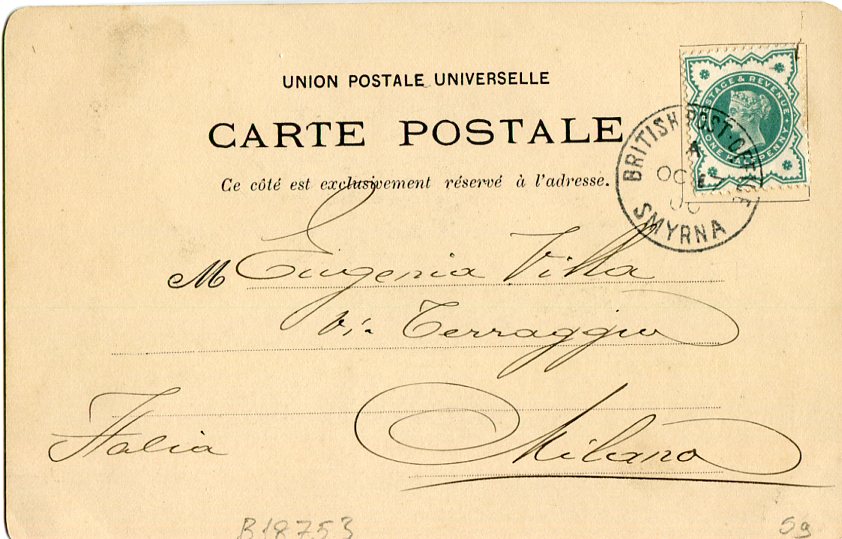 UNION POSTALE UNIVERSELLE
CARTE POSTALE
Ce côté est exclusivement réservé à l'adresse.
POSTAGE & REVENUE
ONE HALFPENNY
BRITISH POST OFFICE
A
OC 17
00
SMYRNA
M Eugenia Villa
via Terraggio
Italia
Milano
B18753
59